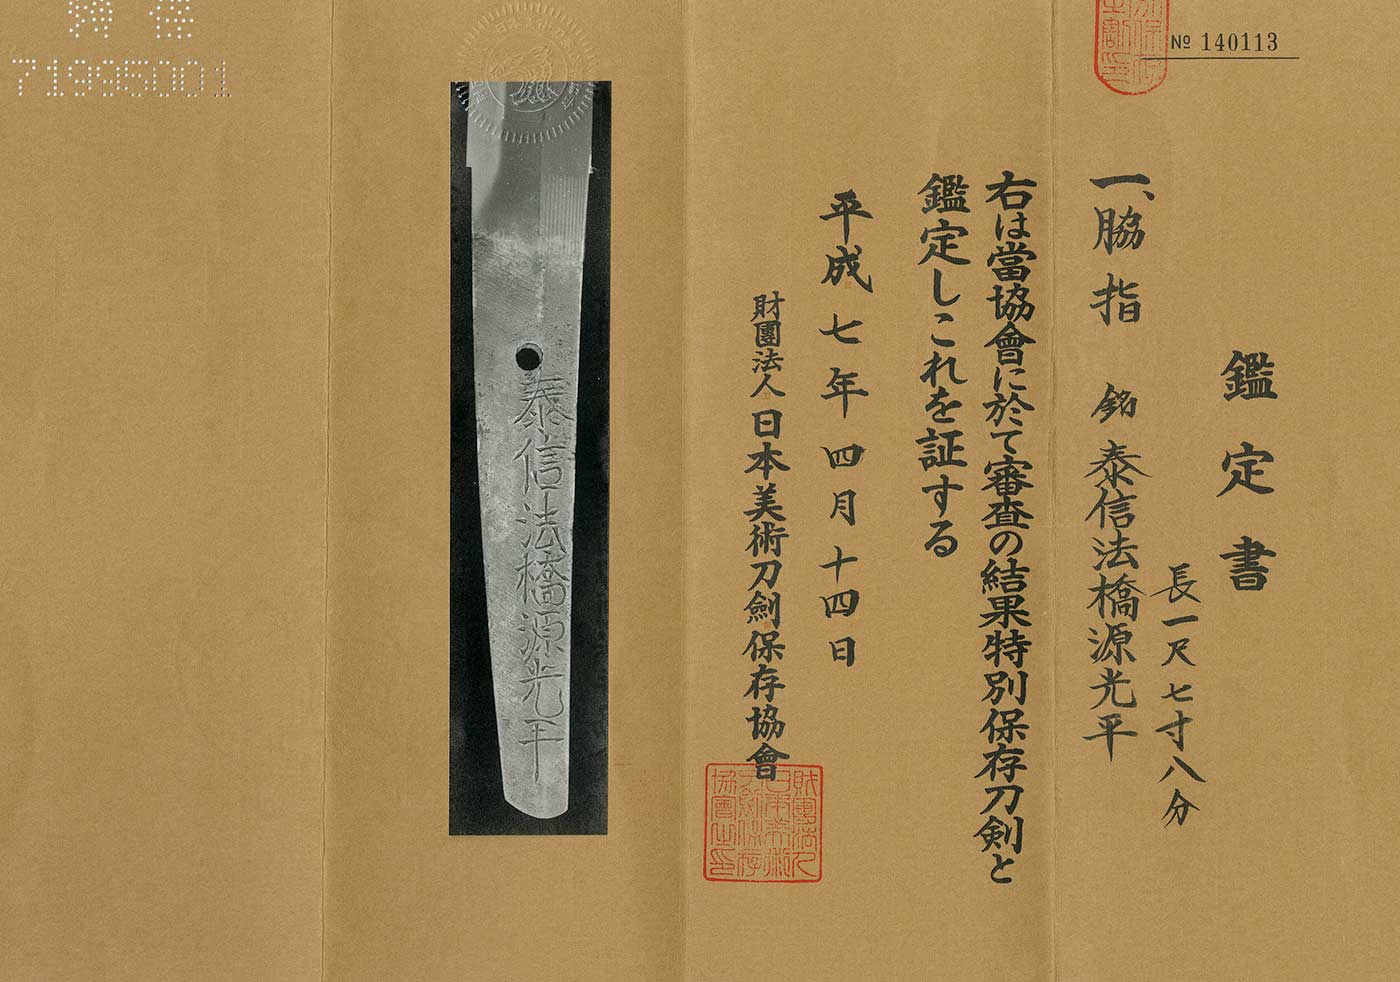 № 140113
鑑定書
長一尺七寸八分
一、脇指 銘 泰信法橋源光平
右は當協會に於て審査の結果特別保存刀剣と
鑑定しこれを証する
平成七年四月十四日
財團法人日本美術刀劍保存協會
財團法人
日本美術
刀劍保存
協會之印
泰信法橋源光平
特保
71995001